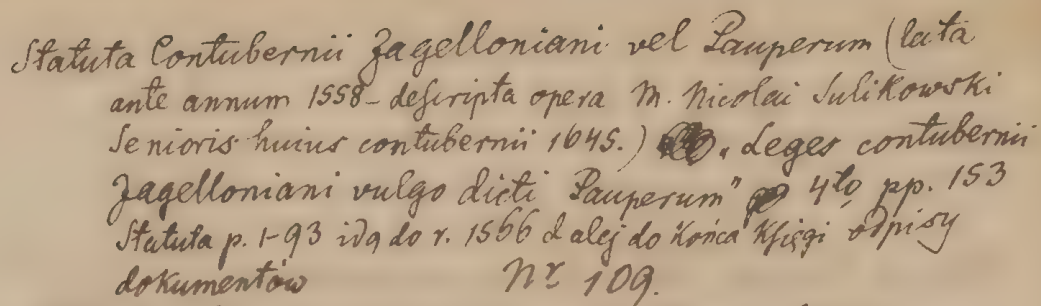 Statuta Contubernii Jagelloniani vel Pauperum (lata
ante annum 1558 - descripta opera M. Nicolai Sulikowski
Senioris huius contubernii 1645.) „Leges contubernii
Jagelloniani vulgo dicti Pauperum" 4to, pp. 153
Statuta p. 1-93 idą do r. 1566 dalej do końca księgi odpisy
dokumentów Nr 109.